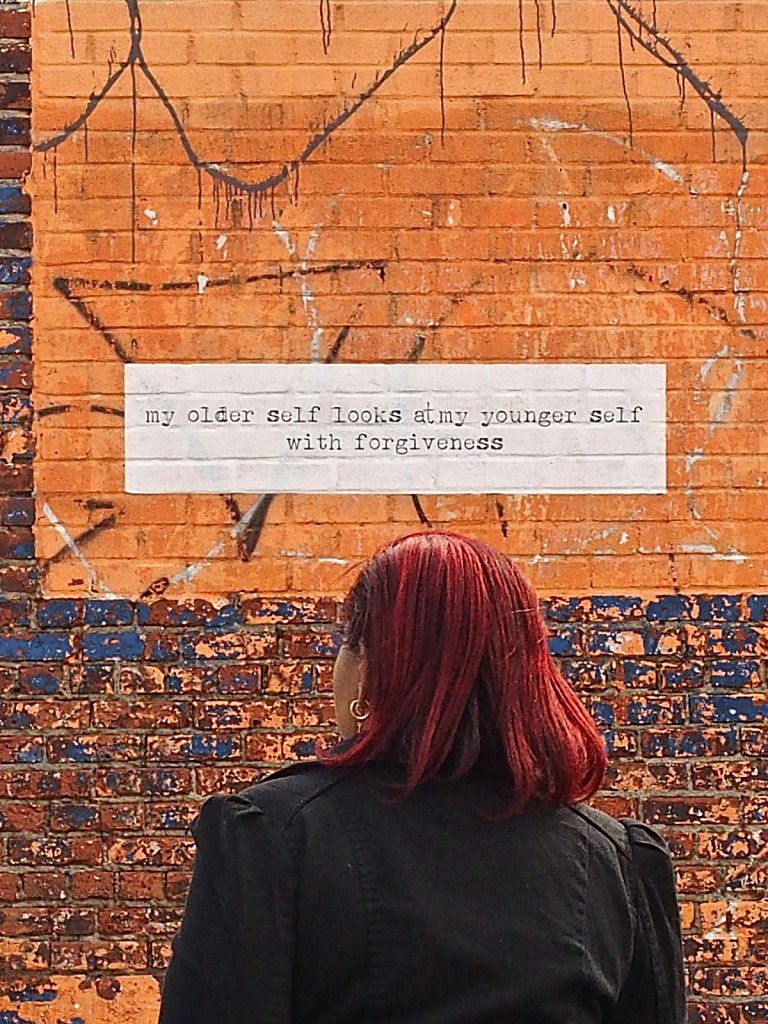 my older self looks at my younger self
with forgiveness